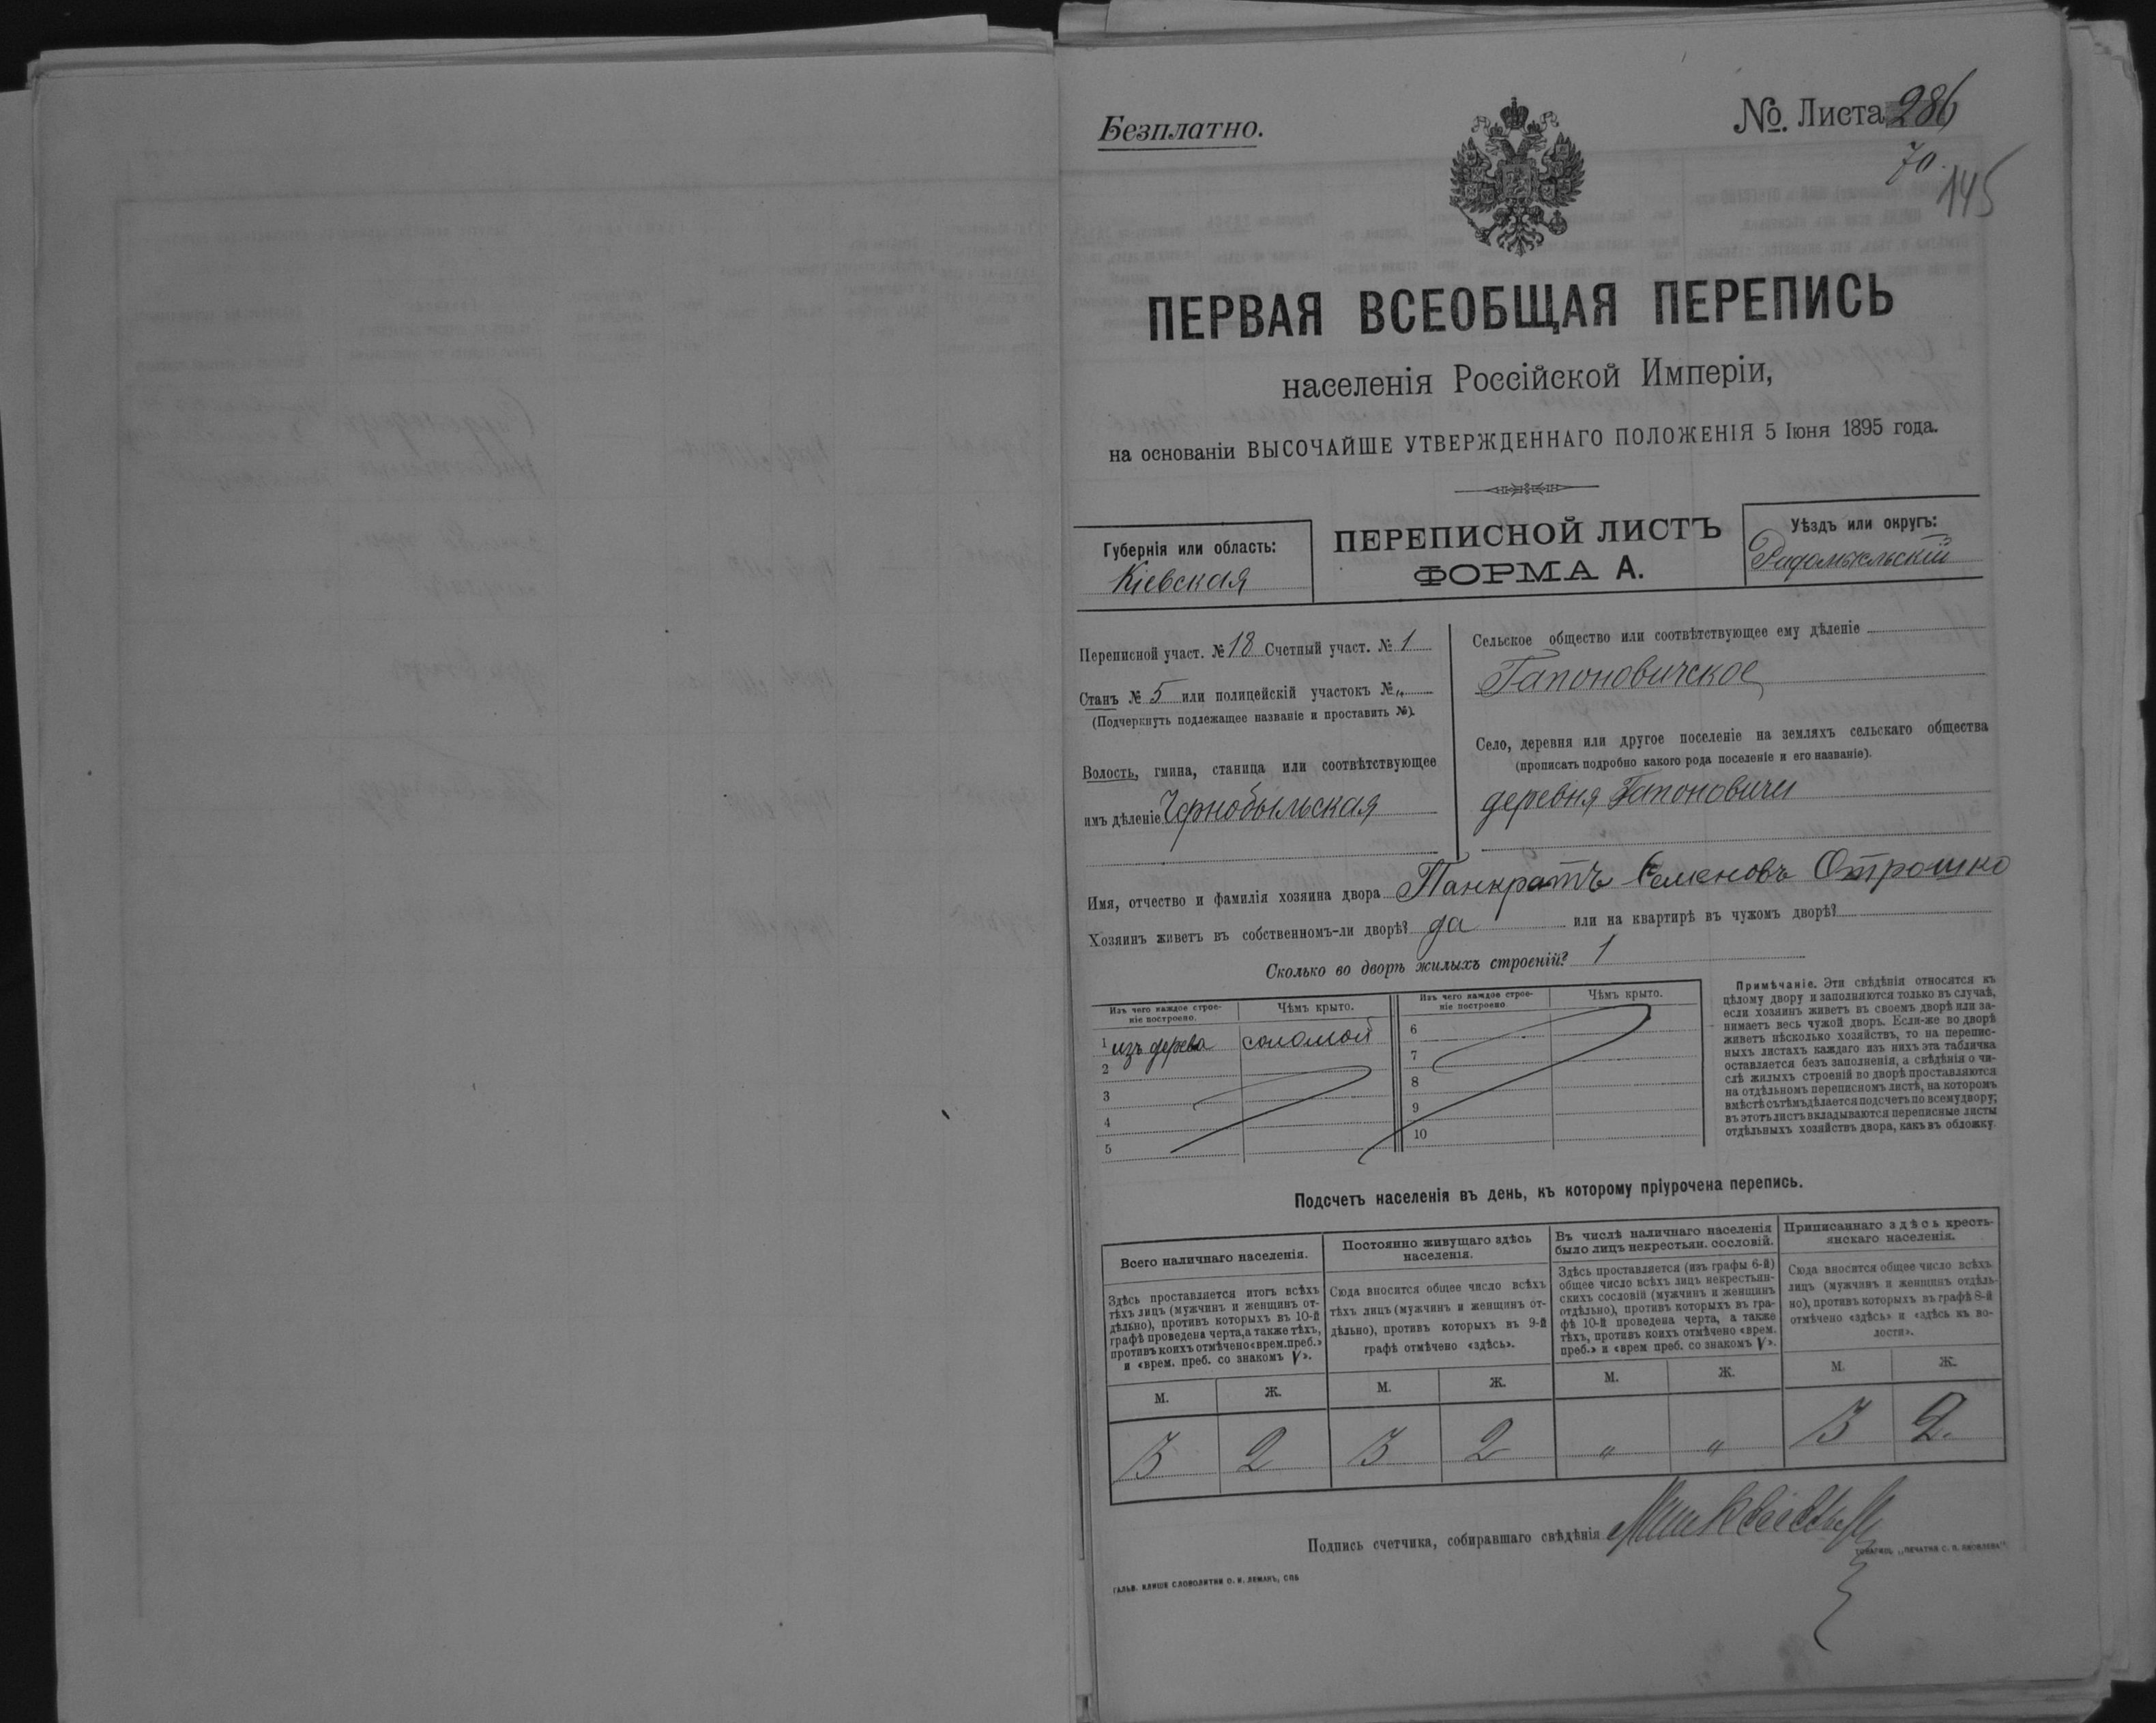 Безплатно.
№. Листа 286
70.
145
ПЕРВАЯ ВСЕОБЩАЯ ПЕРЕПИСЬ
населенія Россійской Имперіи,
на основаніи ВЫСОЧАЙШЕ УТВЕРЖДЕННАГО ПОЛОЖЕНІЯ 5 Іюня 1895 года.
Губернія или область:
Кіевская
ПЕРЕПИСНОЙ ЛИСТЪ
ФОРМА А.
Уѣздъ или округъ:
Радомысльскій
Переписной участ. № 18 Счетный участ. № 1
Станъ № 5 или полицейскій участокъ № „
(Подчеркнуть подлежащее названіе и проставить №).
Волость, гмина, станица или соотвѣтствующее
имъ дѣленіе Чернобыльская
Сельское общество или соотвѣтствующее ему дѣленіе
Гапоновичское
Село, деревня или другое поселеніе на земляхъ сельскаго общества
(прописать подробно какого рода поселеніе и его названіе).
деревня Гапоновичи
Имя, отчество и фамилія хозяина двора Панкратъ Семеновъ Отрошко
Хозяинъ живетъ въ собственномъ-ли дворѣ? да или на квартирѣ въ чужомъ дворѣ?
Сколько во дворѣ жилыхъ строеній? 1
Изъ чего каждое строе-
ніе построено.
Чѣмъ крыто.
Изъ чего каждое строе-
ніе построено
Чѣмъ крыто.
1 изъ дерева соломой
2
3
4
5
6
7
8
9
10
Примѣчаніе. Эти свѣдѣнія относятся къ
цѣлому двору и заполняются только въ случаѣ,
если хозяинъ живетъ въ своемъ дворѣ или за-
нимаетъ весь чужой дворъ. Если-же во дворѣ
живетъ нѣсколько хозяйствъ, то на перепис-
ныхъ листахъ каждаго изъ нихъ эта табличка
оставляется безъ заполненія, а свѣдѣнія о чи-
слѣ жилыхъ строеній во дворѣ проставляются
на отдѣльномъ переписномъ листѣ, на которомъ
вмѣстѣ съ тѣмъ дѣлается подсчетъ по всему двору;
въ этотъ листъ вкладываются переписные листы
отдѣльныхъ хозяйствъ двора, какъ въ обложку.
Подсчетъ населенія въ день, къ которому пріурочена перепись.
Всего наличнаго населенія.
Здѣсь проставляется итогъ всѣхъ
тѣхъ лицъ (мужчинъ и женщинъ от-
дѣльно), противъ которыхъ въ 10-й
графѣ проведена черта, а также тѣхъ,
противъ коихъ отмѣчено «врем. преб.»
и «врем. преб. со знакомъ V».
Постоянно живущаго здѣсь
населенія.
Сюда вносится общее число всѣхъ
тѣхъ лицъ (мужчинъ и женщинъ от-
дѣльно), противъ которыхъ въ 9-й
графѣ отмѣчено «здѣсь».
Въ числѣ наличнаго населенія
было лицъ некрестьян. сословій.
Здѣсь проставляется (изъ графы 6-й)
общее число всѣхъ лицъ некрестьян-
скихъ сословій (мужчинъ и женщинъ
отдѣльно), противъ которыхъ въ гра-
фѣ 10-й проведена черта, а также
тѣхъ, противъ коихъ отмѣчено «врем.
преб.» и «врем преб. со знакомъ V».
Приписаннаго здѣсь кресть-
янскаго населенія.
Сюда вносится общее число всѣхъ
лицъ (мужчинъ и женщинъ отдѣль-
но), противъ которыхъ въ графѣ 8-й
отмѣчено «здѣсь» и «здѣсь къ во-
лости».
М. Ж. М. Ж. М. Ж. М. Ж.
3 2 3 2 „ „ 3 2.
Подпись счетчика, собиравшаго свѣдѣнія
ГАЛЬВ. КЛИШЕ СЛОВОЛИТНИ О. И. ЛЕМАНЪ, СПБ
ТОВАРИЩ. „ПЕЧАТНЯ С. П. ЯКОВЛЕВА"